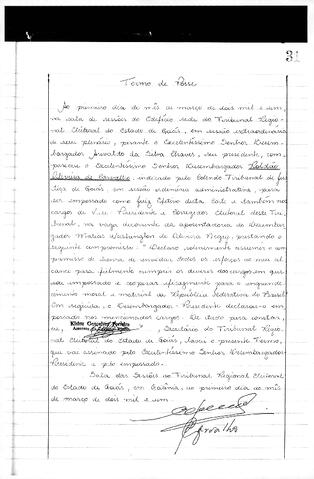 31
Termo de Posse
Ao primeiro dia do mês de março de dois mil e um,
na sala de sessões do Edifício sede do Tribunal Regio-
nal Eleitoral do Estado de Goiás, em sessão extraordinária
de seu plenário, perante o Excelentíssimo Senhor Desem-
bargador da Silva Chaves, seu presidente, com-
pareceu o Excelentíssimo Senhor Desembargador
Oliveira de Carvalho, indicado pelo Tribunal de Jus-
tiça de Goiás em sessão ordinária administrativa, para
ser empossado como Juiz efetivo desta Corte e também nos
cargos de Vice Presidente e Corregedor Eleitoral deste Tri-
bunal, na vaga decorrente da aposentadoria do Desembar-
gador Washington de prestando o
seguinte compromisso: "Declaro solenemente assumir e
prometo de envidar todos os esforços ao meu al-
cance para fielmente cumprir os deveres dos cargos em que
sou empossado e cooperar eficazmente para o engrande-
cimento moral e material da República Federativa do Brasil".
Em seguida, o Desembargador-Presidente declarou-o em-
possado nos mencionados cargos. Do que para constar,
eu, Secretário do Tribunal Regio-
nal Eleitoral do Estado de Goiás, lavrei o presente Termo,
que vai assinado pelo Excelentíssimo Senhor Desembargador-
Presidente e pelo empossado.
Sala das Sessões do Tribunal Regional Eleitoral
do Estado de Goiás, em Goiânia, ao primeiro dia do mês
de março de dois mil e um.